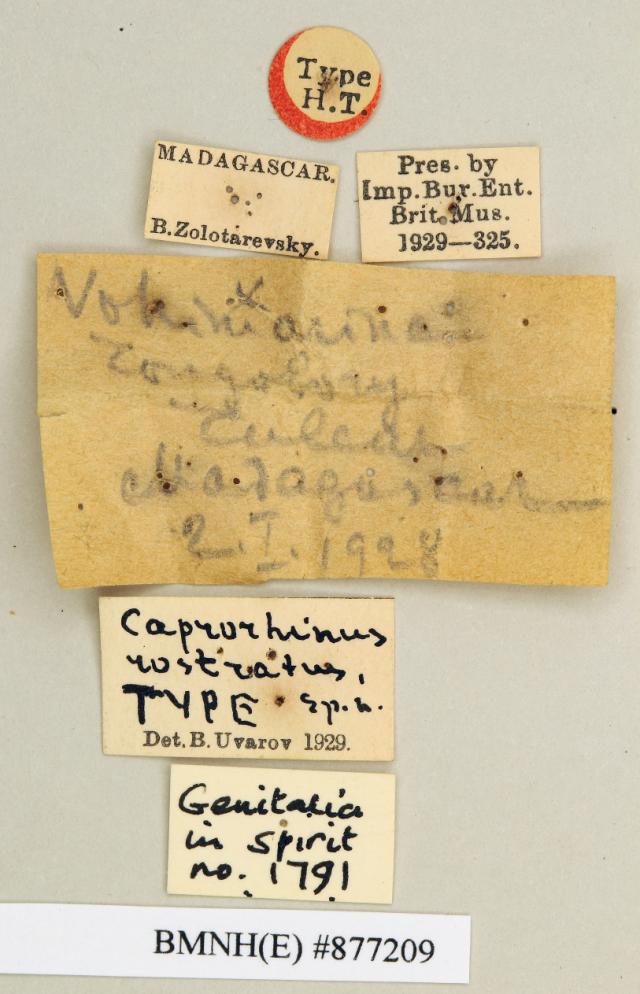 Type
H.T.
MADAGASCAR.
B.Zolotarevsky.
Pres. by
Imp.Bur.Ent.
Brit.Mus.
1929—325.
Madagascar
2.I.1928
Caprorhinus
rostratus,
TYPE sp.n.
Det. B. Uvarov 1929.
Genitalia
in spirit
no. 1791
BMNH(E) #877209